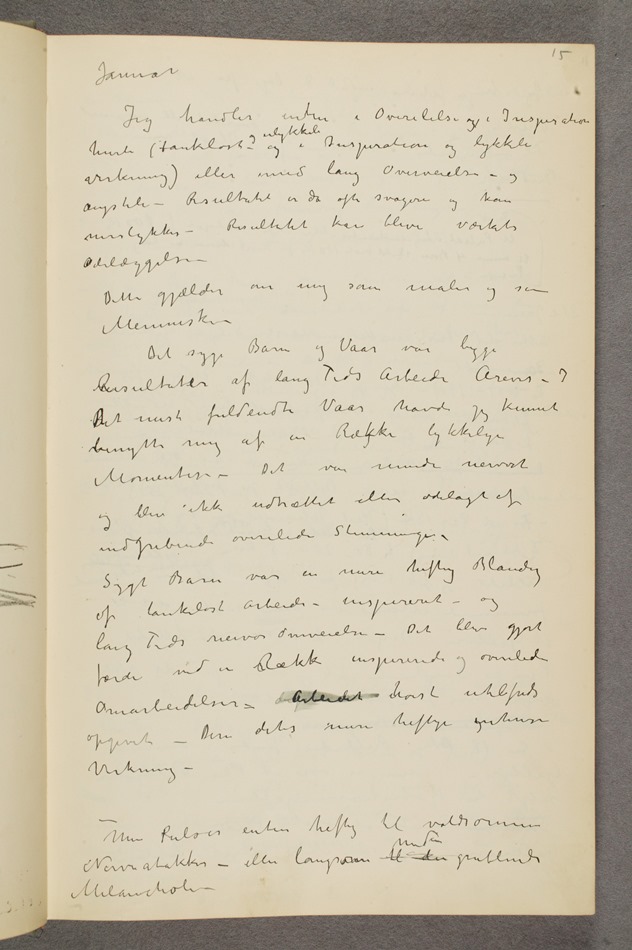 15
Januar
Jeg handler enten i Overilelse og i Inspiration
hurti (tankeløst – og ulykkeli og i Inspiration og lykkeli
virkning) eller med lang Overveielse – og
ængsteli – Resultatet er da ofte svagere og kan
mislykkes – Resultatet kan blive værkets
ødelæggelse –
Dette gjælder om mig som maler og som
Menneske –
Det syge Barn og Vaar var begge
Resultater af lang Tids Arbeide
Det mest fuldendte Vaar havde jeg kunnet
benytte mig af en Række lykkelige
Momenter – Det var mindre nervøst
og blev ikke udsættet eller ødelagt af
indgribende overilede Stemninger –
Sygt Barn var en mere heftig Blanding
af tankeløst arbeide – inspireret – og
lang Tids nervøs Overveielse – Det blev gjort
færdi ved en Række inspirerede og overilede
Omarbeidelser – Arbeidet
opgivet – Derfor dets mere heftige intense
Virkning –
Min Puls er enten heftig til voldsomme
Nerveatakker – eller langsom til den under grublende
Melancholi –